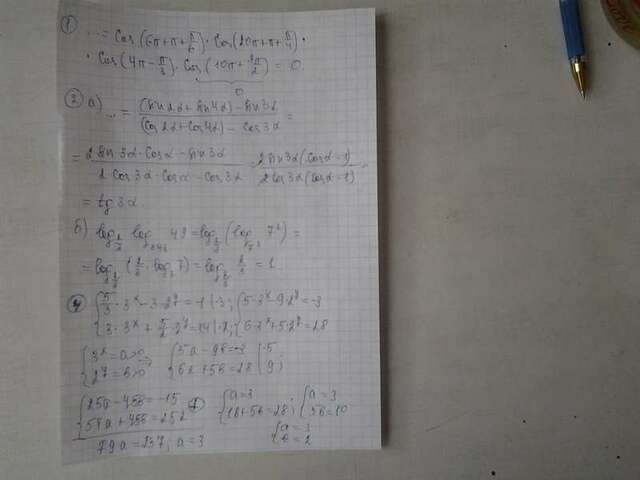 1) ... = cos(6π+π+π/6) · cos(20π+π+π/4) ·
· cos(4π-π/3) · cos(10π+3π/2) = 0.
0
2) а) ... = (sin2α+sin4α)-sin3α / (cos2α+cos4α)-cos3α =
= 2sin3α·cosα-sin3α / 2cos3α·cosα-cos3α = 2sin3α(cosα-1) / 2cos3α(cosα-1) =
= tg3α.
б) log log₃₄₃ 49 = log (log 7²) =
= log (2/3·log₇7) = log 2/3 = 1
4) {5/3·3ˣ-3·2ʸ=-1 |·3; {5·3ˣ-9·2ʸ=-3
{3·3ˣ+5/2·2ʸ=14 |·2; {6·3ˣ+5·2ʸ=28
{3ˣ=a>0 {5a-9b=-3 |·5
{2ʸ=b>0; {6a+5b=28 |9;
{25a-45b=-15 {a=3 {a=3
{54a+45b=252 {18+5b=28; {5b=10
79a=237; a=3 {a=3
{b=2